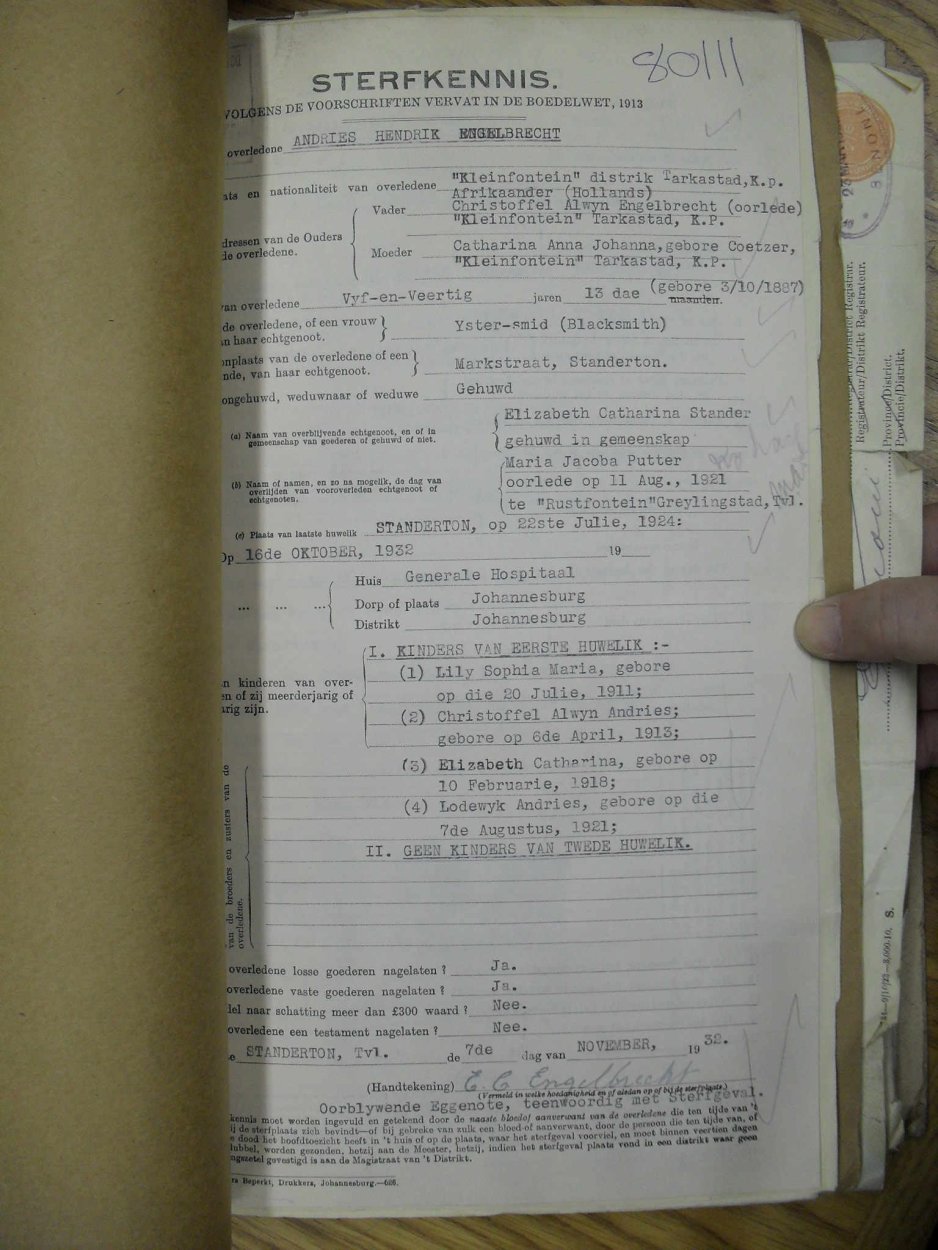 80111
STERFKENNIS.
VOLGENS DE VOORSCHRIFTEN VERVAT IN DE BOEDELWET, 1913
overledene ANDRIES HENDRIK ENGELBRECHT
ats en nationaliteit van overledene "Kleinfontein" distrik Tarkastad, K.p.
Afrikaander (Hollands)
Vader Christoffel Alwyn Engelbrecht (oorlede)
"Kleinfontein" Tarkastad, K.P.
dressen van de Ouders
de overledene.
Moeder Catharina Anna Johanna, gebore Coetzer,
"Kleinfontein" Tarkastad, K.P.
van overledene Vyf-en-Veertig jaren 13 dae (gebore 3/10/1887)
maanden.
de overledene, of een vrouw
n haar echtgenoot. Yster-smid (Blacksmith)
onplaats van de overledene of een
nde, van haar echtgenoot. Markstraat, Standerton.
ongehuwd, weduwnaar of weduwe Gehuwd
(a) Naam van overblijvende echtgenoot, en of in
gemeenschap van goederen of gehuwd of niet.
Elizabeth Catharina Stander
gehuwd in gemeenskap
(b) Naam of namen, en zo na mogelik, de dag van
overlijden van vooroverleden echtgenoot of
echtgenoten.
Maria Jacoba Putter
oorlede op 11 Aug., 1921
te "Rustfontein"Greylingstad, Tvl.
(c) Plaats van laatste huwelik STANDERTON, op 22ste Julie, 1924:
Op 16de OKTOBER, 1932 19
Huis Generale Hospitaal
... ... ... Dorp of plaats Johannesburg
Distrikt Johannesburg
I. KINDERS VAN EERSTE HUWELIK :-
(1) Lily Sophia Maria, gebore
op die 20 Julie, 1911;
n kinderen van over-
n of zij meerderjarig of
rig zijn.
(2) Christoffel Alwyn Andries;
gebore op 6de April, 1913;
(3) Elizabeth Catharina, gebore op
10 Februarie, 1918;
(4) Lodewyk Andries, gebore op die
7de Augustus, 1921;
II. GEEN KINDERS VAN TWEDE HUWELIK.
van de broeders en zusters van de
overledene.
overledene losse goederen nagelaten ? Ja.
overledene vaste goederen nagelaten ? Ja.
del naar schatting meer dan £300 waard ? Nee.
overledene een testament nagelaten ? Nee.
te STANDERTON, Tvl. de 7de dag van NOVEMBER, 1932.
(Handtekening) E. C. Engelbrecht
(Vermeld in welke hoedanigheid en of aledan op of bij de sterfplaats.)
Oorblywende Eggenote, teenwoordig met Sterfgeval.
kennis moet worden ingevuld en getekend door de naaste bloedof aanverwant van de overledene die ten tijde van 't
ij de sterfplaats zich bevindt—of bij gebreke van zulk een bloed-of aanverwant, door de persoon die ten tijde van, of
e dood het hoofdtoezicht heeft in 't huis of op de plaats, waar het sterfgeval voorviel, en moet binnen veertien dagen
dubbel, worden gezonden, hetzij aan de Meester, hetzij, indien het sterfgeval plaats vond in een distrikt waar geen
ngszetel gevestigd is aan de Magistraat van 't Distrikt.
rs Beperkt, Drukkers, Johannesburg.—
BENONI
Registrar/District Registrar.
Registrateur/Distrikt Registrateur.
Province/District.
Provincie/Distrikt.